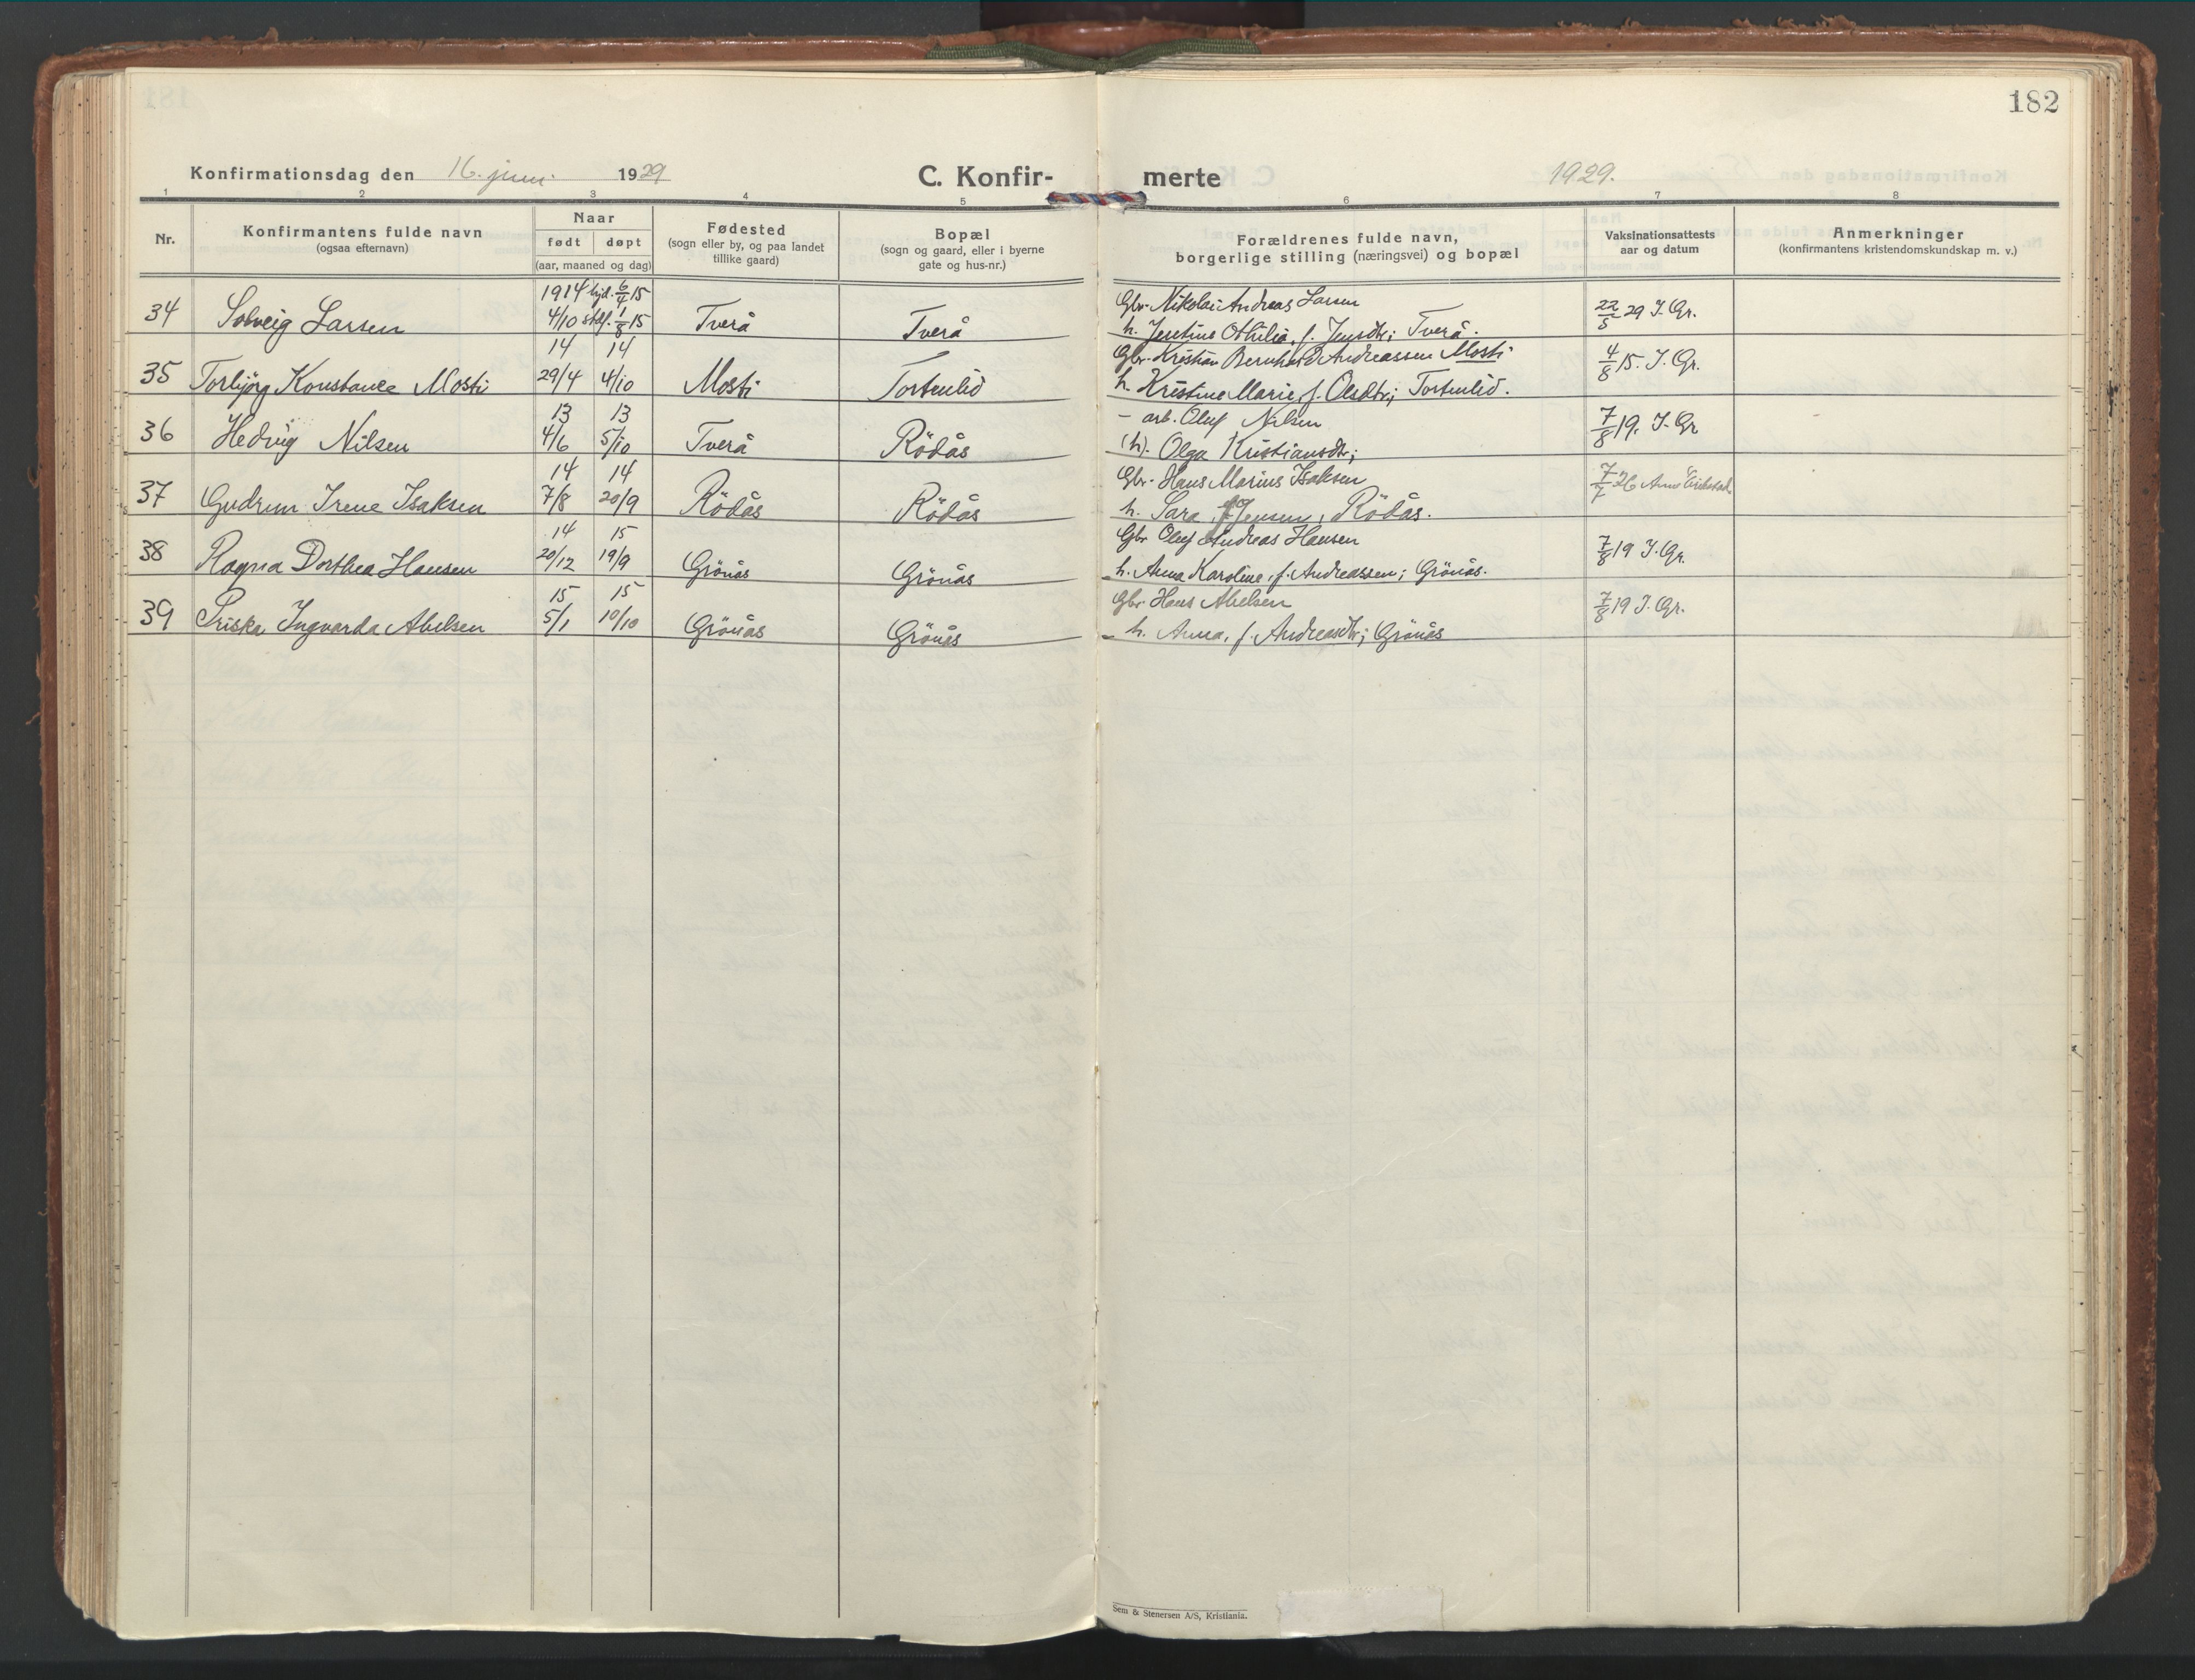 182
Konfirmationsdag den 16. juni 1929
C. Konfir-
merte
1929.
1 2 3 4 5 6 7 8
Nr.
Konfirmantens fulde navn
(ogsaa efternavn)
Naar
født døpt
(aar, maaned og dag)
Fødested
(sogn eller by, og paa landet
tillike gaard)
Bopæl
(sogn og gaard, eller i byerne
gate og hus-nr.)
Forældrenes fulde navn,
borgerlige stilling (næringsvei) og bopæl
Vaksinationsattests
aar og datum
Anmerkninger
(konfirmantens kristendomskundskap m. v.)
1914 hjd. 6/4 15 Gbr. Nikolai Andreas Larsen
34 Solveig Larsen 4/10 stdf. 1/8 15 Tverå Tverå h. Jentine Othilia, f. Jensdtr; Tverå. 22/5 29 J. Gr.
14 14 Gbr. Kristian Bernhard Andreassen Mosti
35 Torbjörg Konstance Mosti 29/4 4/10 Mosti Tortenlid h. Kristine Marie, f. Olsdtr; Tortenlid. 4/8 15. J. Gr.
13 13 - arb. Oluf Nilsen
36 Hedvig Nilsen 4/6 5/10 Tverå Rödås (h). Olga Kristiansdtr; 7/8 19. J. Gr
14 14 Gbr. Hans Marius Isaksen
37 Gudrun Irene Isaksen 7/8 20/9 Rödås Rödås h. Sara, f. Jensen, Rödås. 26
14 15 Gbr Oluf Andreas Hansen
38 Ragna Dorthea Hansen 20/12 19/9 Grönås Grönås h. Anna Karoline, f. Andreassen; Grönås. 7/8 19 J. Gr.
15 15 Gbr. Hans Abelsen
39 Priska Ingvarda Abelsen 5/1 10/10 Grönås Grönås h. Anna, f. Andreasdtr; Grönås 7/8 19 J. Gr.
Sem & Stenersen A/S, Kristiania.